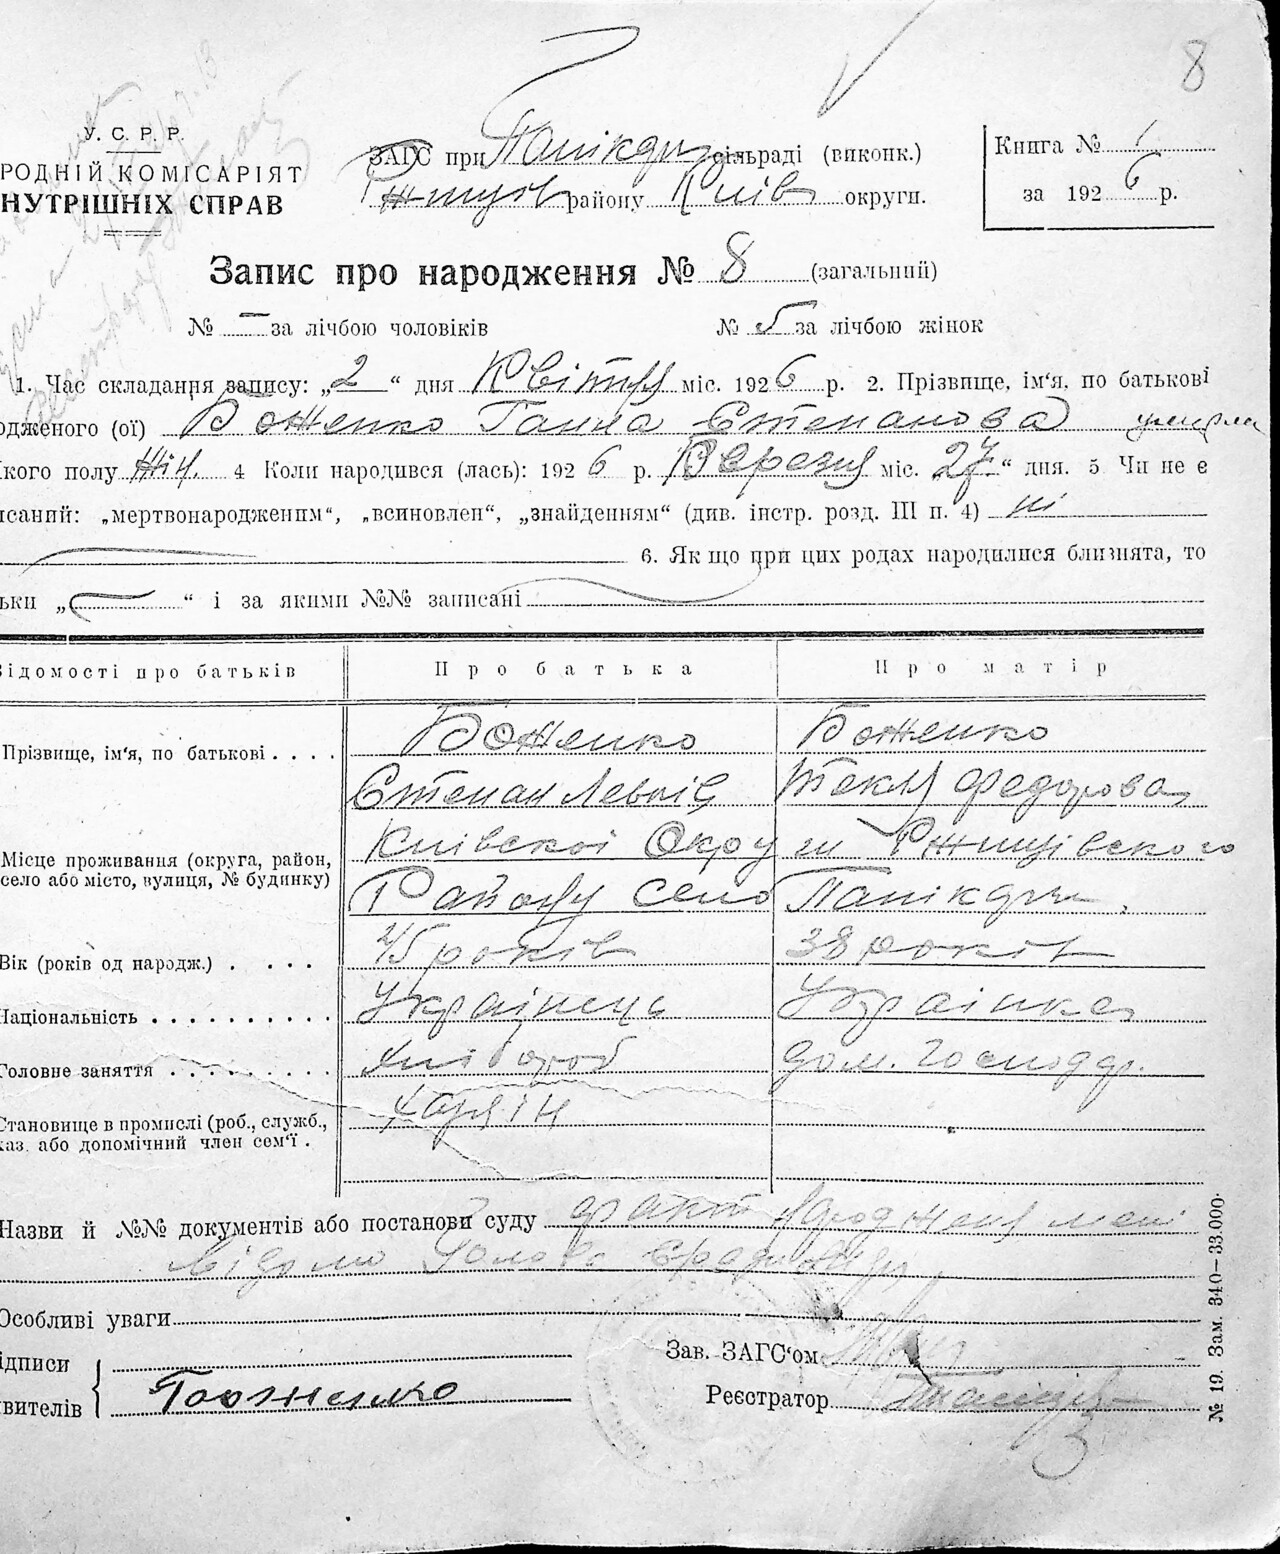 8
У. С. Р. Р.
РОДНІЙ КОМІСАРІЯТ
НУТРІШНІХ СПРАВ
ЗАГС при Папікдри сільраді (виконк.)
Ржищів району Київ округи.
Книга № 1
за 1926 р.
Запис про народження № 8 (загальний)
№ — за лічбою чоловіків № 5 за лічбою жінок
1. Час складання запису: „2“ дня Квітня міс. 1926 р. 2. Прізвище, ім‘я, по батькові
одженого (ої) Боженко Ганна Степанова умерла
кого полу жін. 4 Коли народився (лась): 1926 р. Березня міс. 27“ дня. 5 Чи не є
исаний: „мертвонародженим“, „всиновлен“, „знайденням“ (див. інстр. розд. III п. 4) ні
6. Як що при цих родах народилися близнята, то
ьки „—“ і за якими №№ записані
Відомості про батьків Про батька Про матір
Прізвище, ім‘я, по батькові . . . . Боженко Боженко
Степан Левків Текля Федорова
Місце проживання (округа, район, село або місто, вулиця, № будинку) Київскоі Округи Ржищівского
Району село Папікдри
Вік (років од народж.) . . . . 45 років 38 років
Національність . . . . . . . . . . Українець Українка
Головне заняття . . . . . . . . . Хлібороб дом. Господар.
Становище в промислі (роб., служб., хаз. або допомічний член сем‘ї . хазяін
Назви й №№ документів або постанови суду факт народження мені
відомо Голова
Особливі уваги
ідписи
явителів Боженко
Зав. ЗАГС‘ом
Реєстратор
№ 19. Зам. 340—33.000.